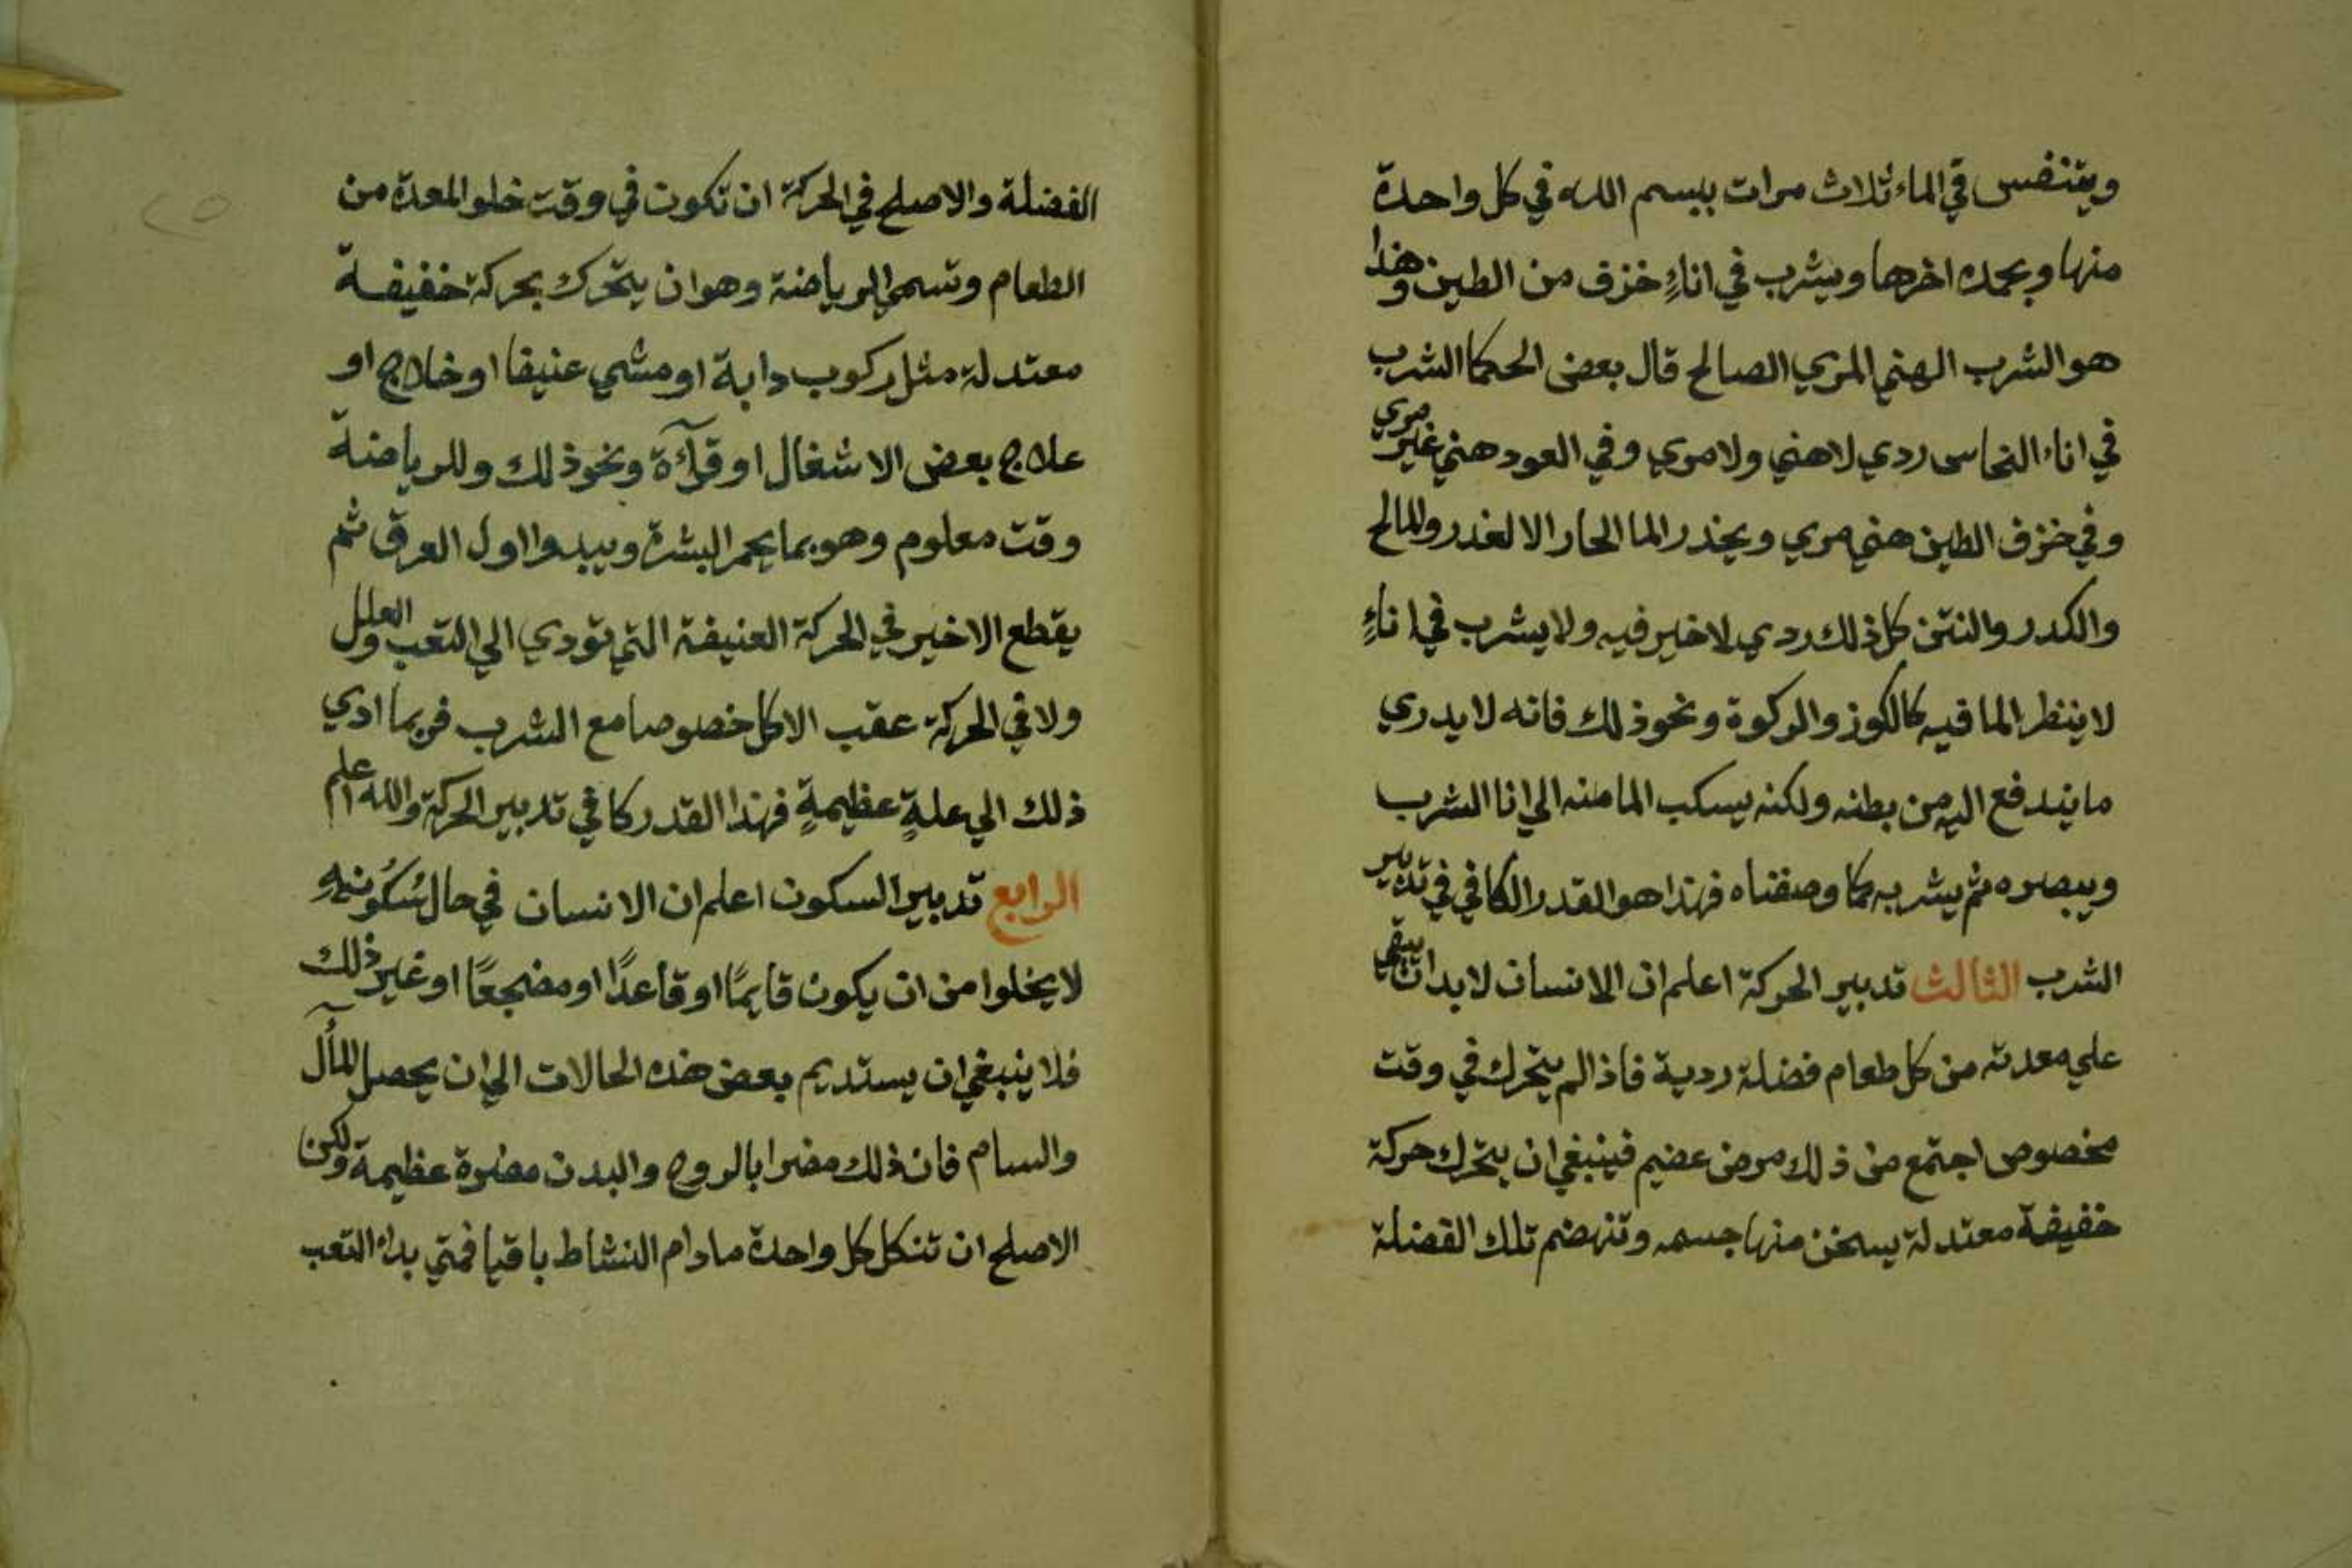 ويتنفس في الماء ثلاث مرات ببسم الله في كل واحدة
منها وبحمده اخرها ويشرب في اناءٍ خزف من الطين وهذا
هو الشرب الهني المري الصالح قال بعض الحكما الشرب
في اناء النحاس ردي لاهني ولا مري وفي العود هني غير مري
وفي خزف الطين هني مري ويحذر الما الحار الا لعذر والمالح
والكدر والنتن كل ذلك ردي لاخير فيه ولا يشرب في اناءٍ
لا ينظر الما فيه كالكوز والركوة ونحو ذلك فانه لا يدري
ما يندفع اليه من بطنه ولكنه يسكب الما منه الي انا الشرب
ويبصره ثم يشربه كما وصفناه فهذا هو القدر الكافي في تدبير
الشرب الثالث تدبير الحركة اعلم ان الانسان لا بد ان يبقي
علي معدته من كل طعام فضلة ردية فاذا لم يتحرك في وقت
مخصوص اجتمع من ذلك مرض عضيم فينبغي ان يتحرك حركة
خفيفة معتدلة يسخن منها جسمه وتنهضم تلك الفضلة
٢٥
الفضلة والاصلح في الحركة ان تكون في وقت خلو المعدة من
الطعام وتسمي الرياضة وهو ان يتحرك بحركة خفيفة
معتدلة مثل ركوب دابة او مشي عنيفا او خلاج او
علاج بعض الاشغال او قرآءة ونحو ذلك وللرياضة
وقت معلوم وهو بما يحمر البشرة ويبدوا اول العرق ثم
يقطع الاخير في الحركة العنيفة التي تودي الي التعب والعلل
ولا في الحركة عقب الاكل خصوصا مع الشرب فربما ادي
ذلك الي علةٍ عظيمةٍ فهذا القدر كا في تدبير الحركة والله اعلم
الرابع تدبير السكون اعلم ان الانسان في حال سُكُونِهِ
لا يخلوا من ان يكون قايمًا او قاعدًا او مضجعًا او غير ذلك
فلا ينبغي ان يستديم بعض هذه الحالات الي ان يحصل المأل
والسام فان ذلك مضرا بالروح والبدن مضرة عظيمة ولكن
الاصلح ان تنكل كل واحدة ما دام النشاط باقيا فمتي بداء التعب